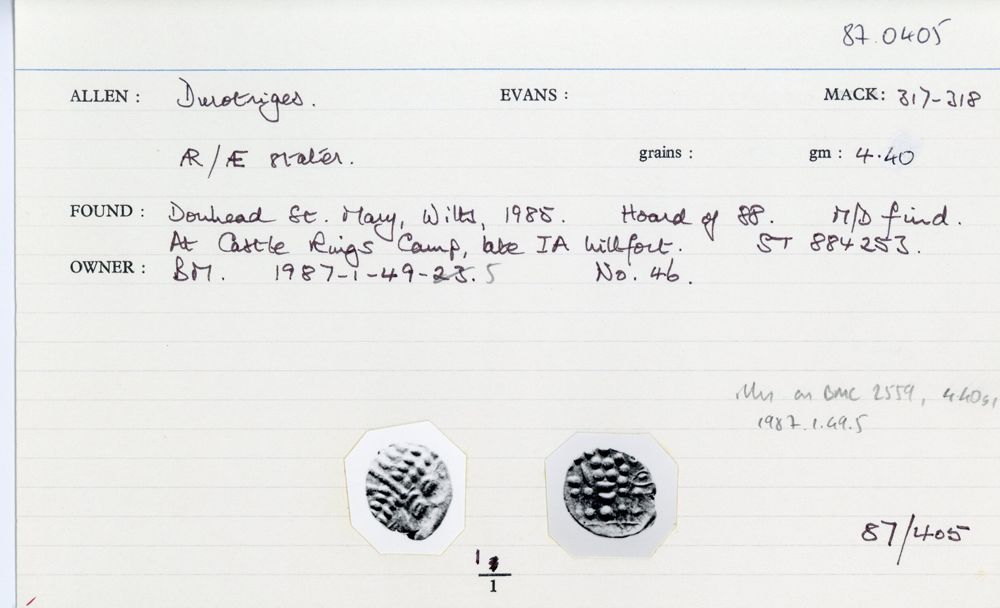 87.0405
ALLEN : Durotriges. EVANS : MACK: 317-318
ÆR/Æ stater. grains : gm : 4.40
FOUND : Donhead St. Mary, Wilts, 1985. Hoard of 88. M/D find.
At Castle Rings Camp, late IA hillfort. ST 884253.
OWNER : BM. 1987-1-49-23.5 No. 46.
on BMC 2559, 4.40g,
1987.1.49.5
87/405
1
1